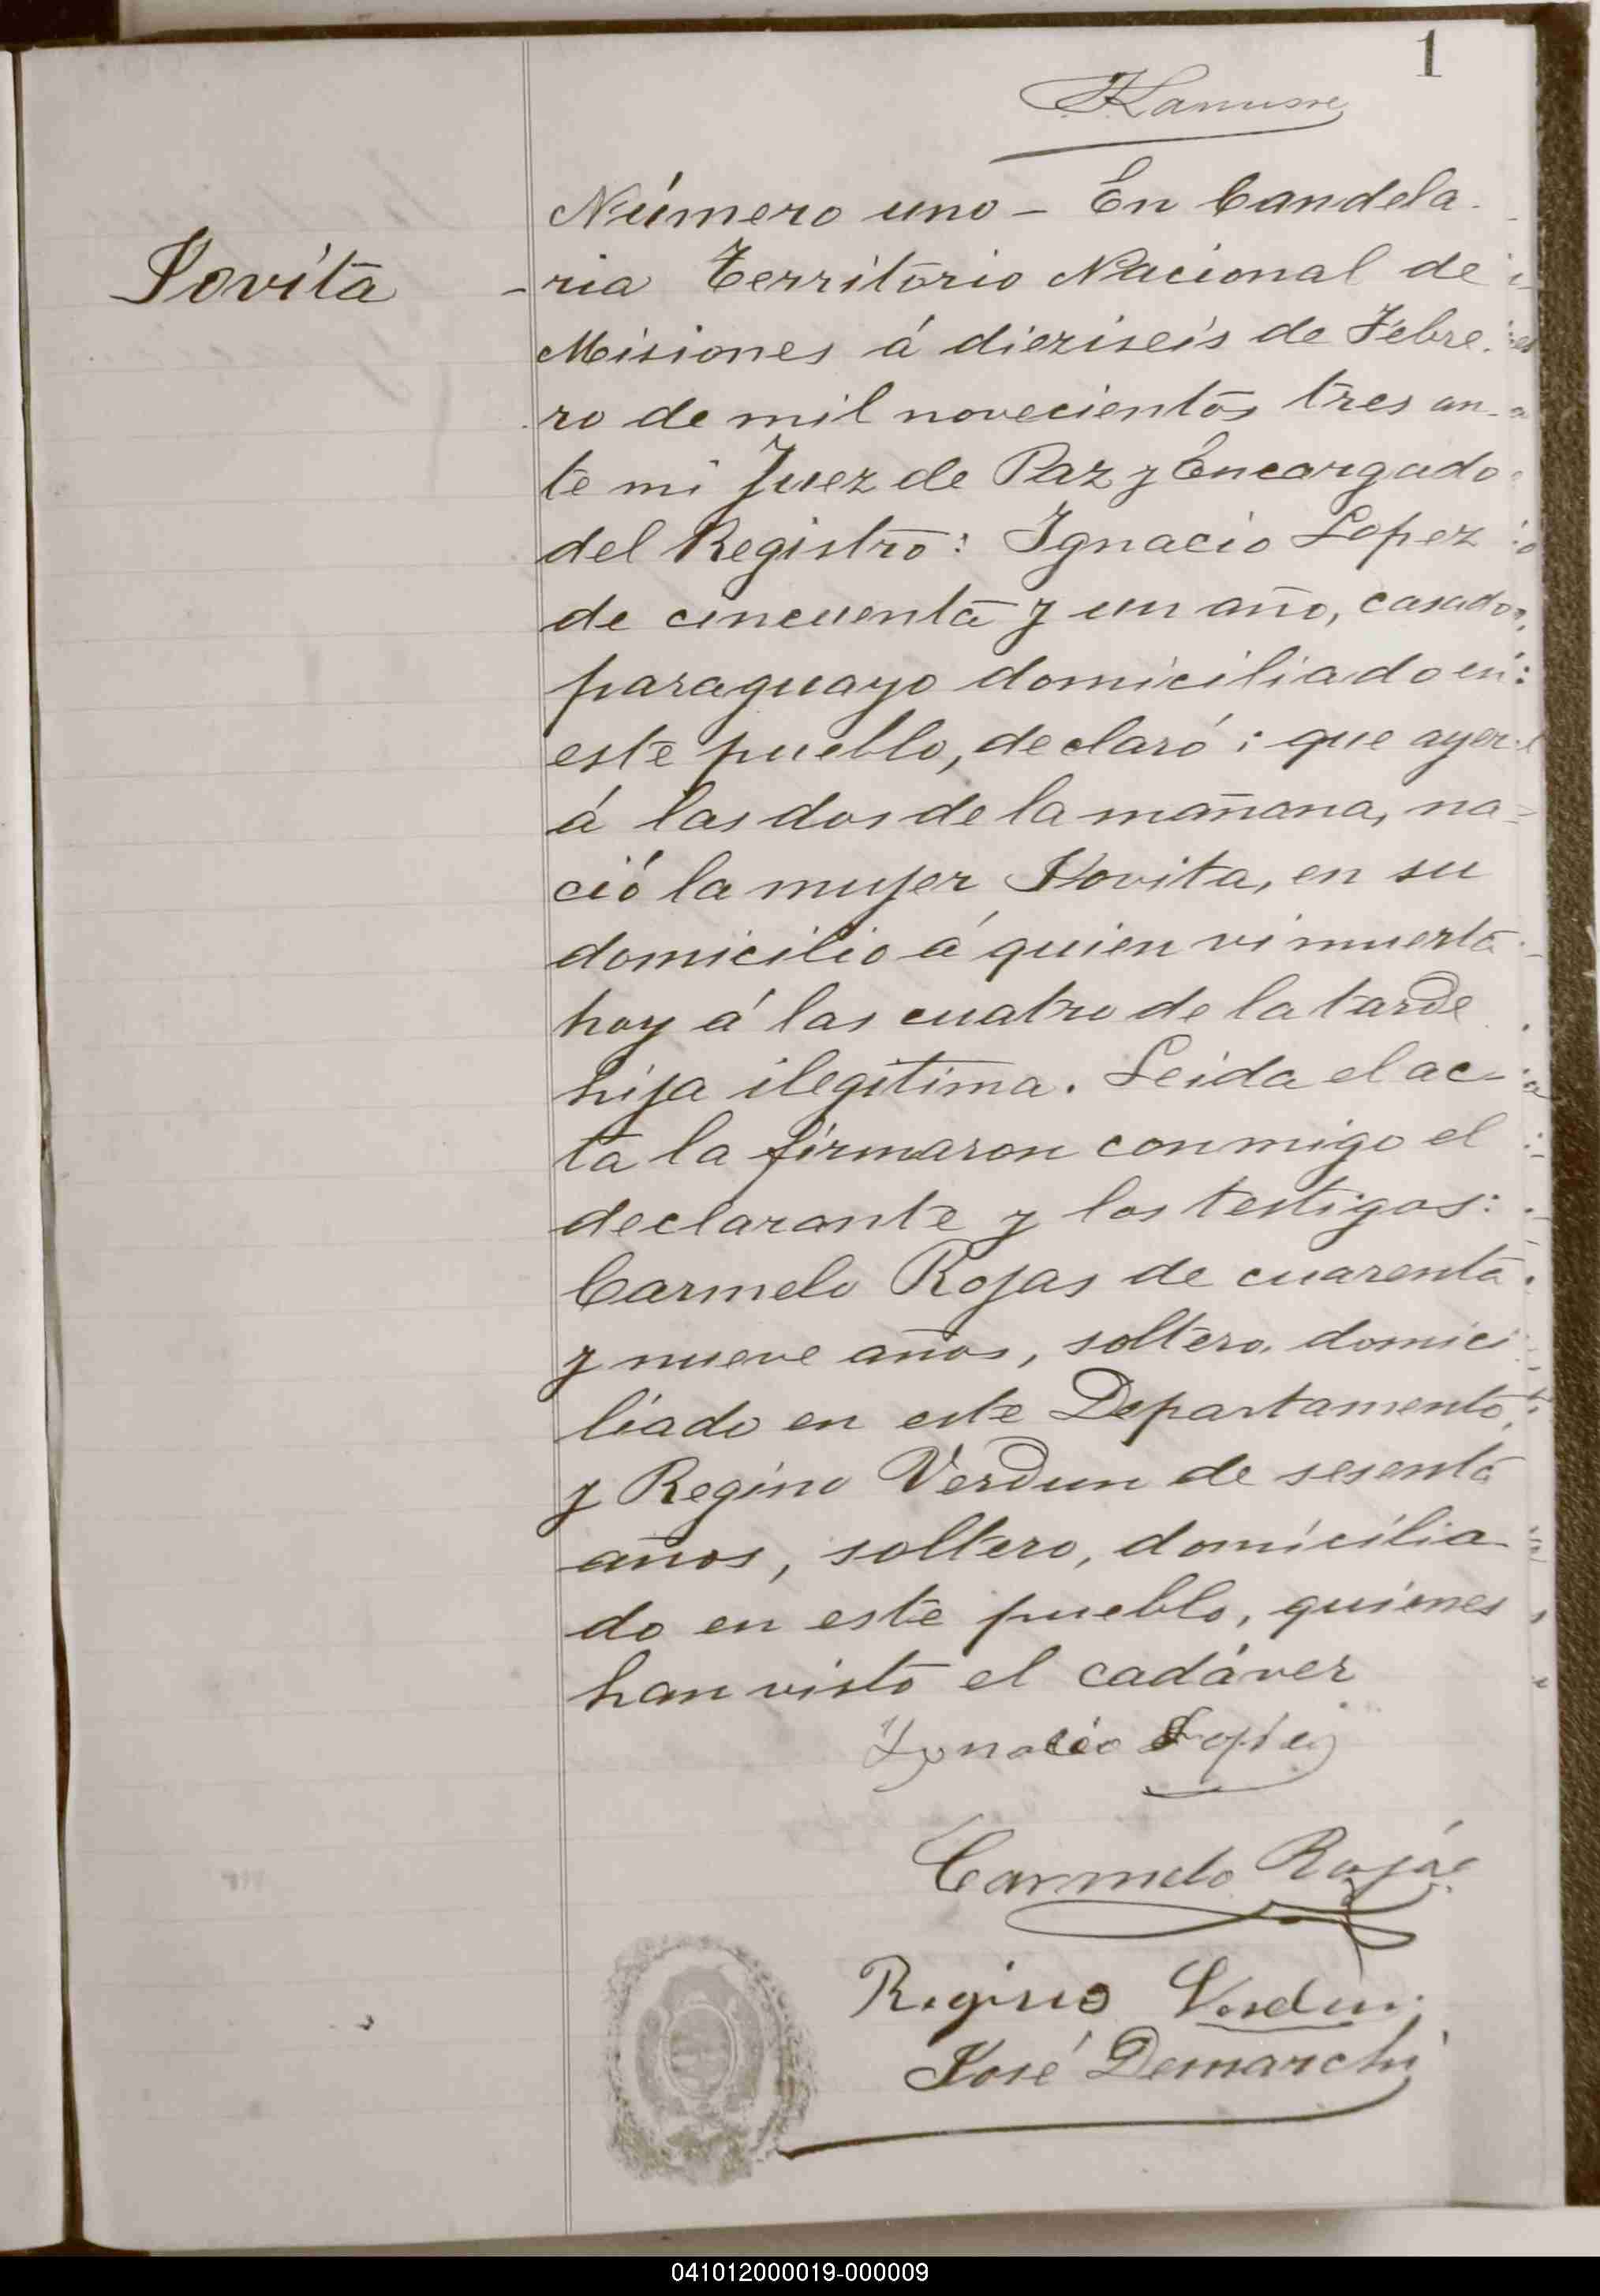 1
JLanusse
Jovita
Número uno - En Candela-
ria Territorio Nacional de
Misiones á dieziseis de Febre-
ro de mil novecientos tres an-
te mi Juez de Paz y Encargado
del Registro: Ignacio Lopez
de cincuenta y un año, casado,
paraguayo domiciliado en
este pueblo, declaró: que ayer
á las dos de la mañana, na-
ció la mujer Jovita, en su
domicilio á quien vi muerta
hoy á las cuatro de la tarde
hija ilegitima. Leida el ac-
ta la firmaron conmigo el
declarante y los testigos:
Carmelo Rojas de cuarenta
y nueve años, soltero, domici
liado en este Departamento,
y Regino Verdun de sesenta
años, soltero, domicilia-
do en este pueblo, quienes
han visto el cadáver
Ygnacio Lopez
Carmelo Rojás
Regino Verdun
José Demarchi
041012000019-000009